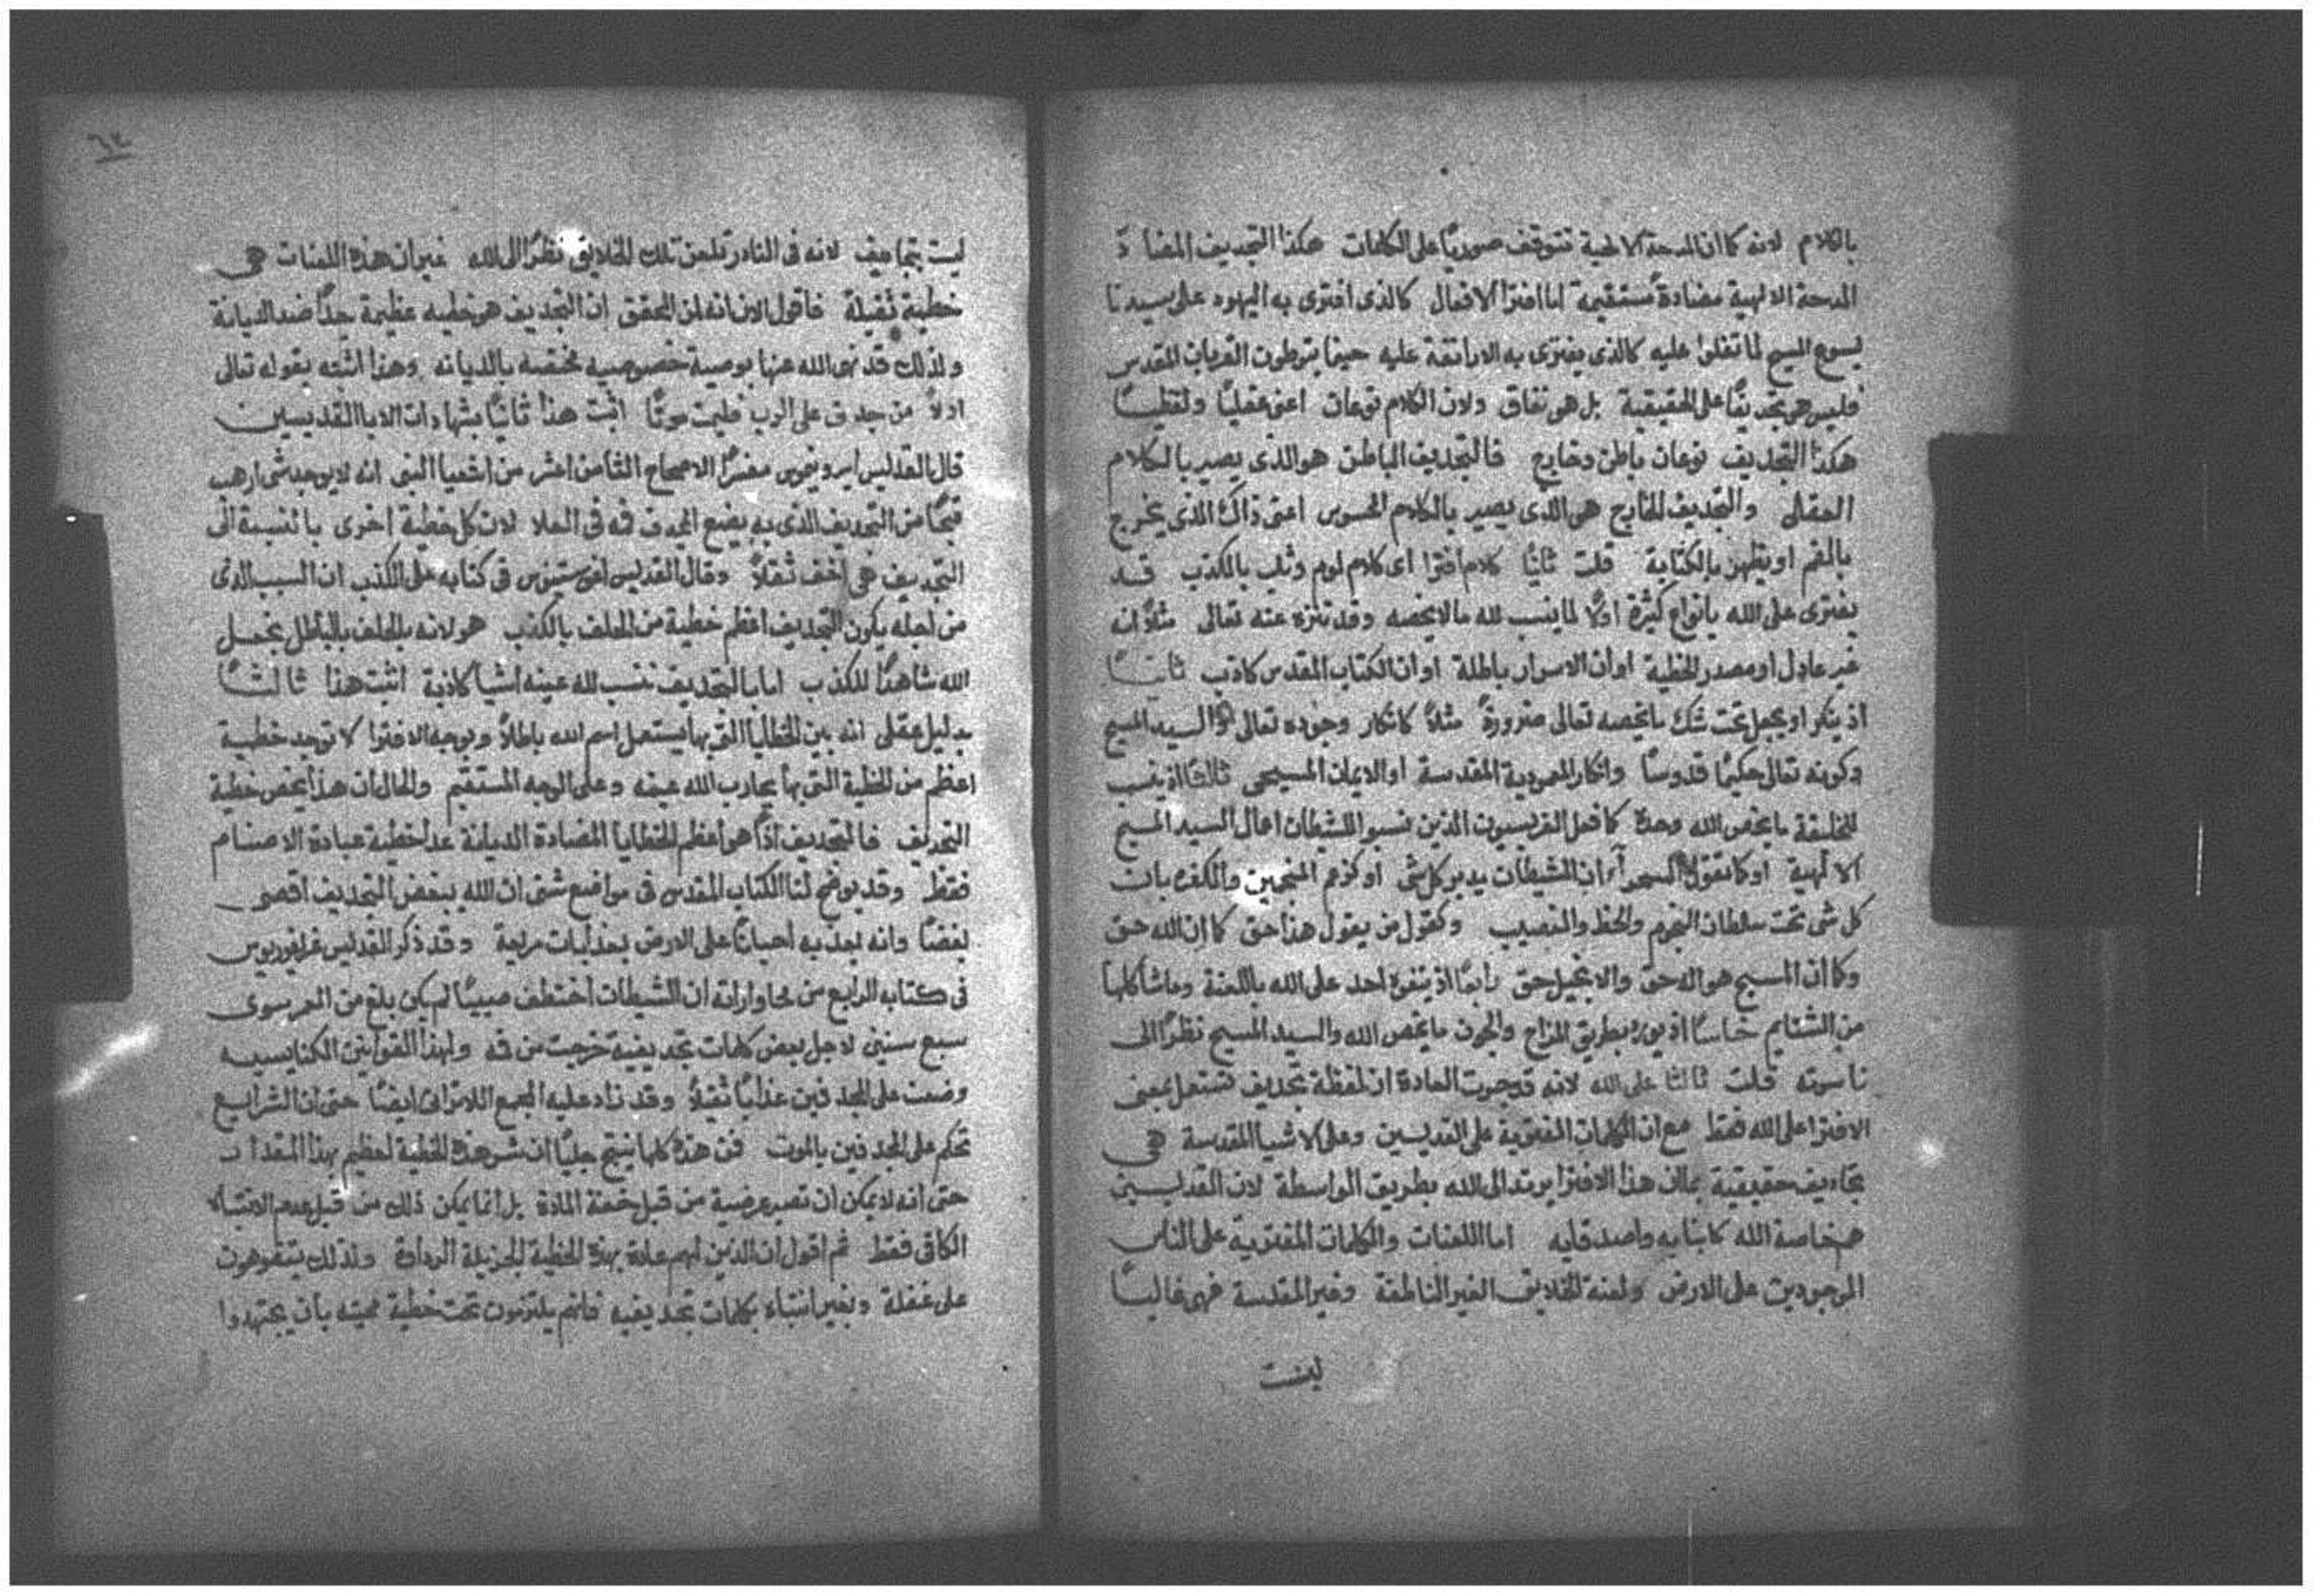 بالكلام لانه كما ان المدحة الالهية تتوقف صوريًا على الكلمات هكذا التجديف المضاد
المدحة الالهية مضادةً مستقيمة اما افترا الافعال كالذى افترى به اليهود على سيدنا
يسوع المسيح لما تفلوا عليه كالذى يفترى به الاراتقة عليه حينما يتوطون القربان المقدس
فليس هو تجديفًا على الحقيقية بل هو نفاق ولان الكلام نوعان اعنى عقليًا ولفظيًا
هكذا التجديف نوعان باطن وخارج فالتجديف الباطن هو الذى يصير بالكلام
العقلى والتجديف الخارج هو الذى يصير بالكلام المحسوس اعنى ذاك الذى يخرج
بالفم او يظهر بالكتابة قلت ثانيًا كلام افترا اى كلام لوم وثلب بالمكذب قد
يفترى على الله بانواع كثيرة اولًا لما ينسب لله ما لا يخصه وقد تنزه عنه تعالى مثلًا انه
غير عادل او مصدر الخطية او ان الاسرار باطلة او ان الكتاب المقدس كاذب ثانيًا
اذ ينكر او يجعل تحت شك ما يخصه تعالى ضرورةً مثلًا كانكار وجوده تعالى او السيد المسيح
وكونه تعالى حكيمًا قدوسًا وانكار المعمودية المقدسة او الايمان المسيحى ثالثًا اذ ينسب
للخليقة ما يخص الله وحده كما فعل الفريسيون الذين نسبوا للشيطان اعمال السيد المسيح
الالهية او كما تقول السحرآء ان الشيطان يدبر كل شى او كزعم المنجمين والكفره بان
كل شى تحت سلطان النجوم والحظ والنصيب وكقول من يقول هذا حق كما ان الله حق
وكما ان المسيح هو اله حق والانجيل حق رابعًا اذ يتفوه احد على الله باللعنة وماشاكلها
من الشتايم خامسًا اذ يورد بطريق المزاح والمجون ما يخص الله والسيد المسيح نظرًا الى
ناسوته قلت ثالثا على الله لانه قد جرت العادة ان لفظة تجديف تستعمل بمعنى
الافترا على الله فقط مع ان الكلمات المفتوية على القديسين وعلى الاشيا المقدسة هى
تجاديف حقيقية بما ان هذا الافترا يرتد الى الله بطريق الواسطة لان القديسين
هم خاصة الله كابنايه واصدقايه اما اللعنات والكلمات المفتوية على الناس
الموجودين على الارض ولعنة الخلايق الغير الناطقة وغير المقدسة فهى غالبًا
ليست
٦٤
ليست بتجاديف لانه فى النادر تلعن تلك الخلايق نظرًا الى الله غير ان هذه اللعنات هى
خطية ثقيلة فاقول الان انه لمن المحقق ان التجديف هو خطيه عظيمة جدًا ضد الديانة
ولذلك قد نهى الله عنها بوصية خصوصيه مختصه بالديانه وهذا اثبته بقوله تعالى
اولًا من جدف على الرب فليمت موتًا اثبت هذا ثانيًا بشهادات الابا القديسين
قال القديس ايرونيموس مفسرًا الاصحاح الثامن اعشر من اشعيا النبى انه لا يوجد شى ارهب
قبحًا من التجديف الذى به يضع المجدف فمه فى العلا لان كل خطية اخرى بالنسبة الى
التجديف هى اخف ثقلًا وقال القديس اغوستينوس فى كتابه على الكذب ان السبب الذى
من اجله يكون التجديف اعظم خطية من الحلف بالكذب هو لانه بالحلف بالباطل يجعل
الله شاهدًا للكذب اما بالتجديف ننسب لله عينه اشيا كاذبة اثبت هذا ثالثًا
بدليل عقلى انه بين الخطايا التى بها يستعمل اسم الله باطلًا وبوجه الافترا لا توجد خطية
اعظم من الخطية التى بها يحارب الله عينه وعلى الوجه المستقيم والحال ان هذا يخص خطية
التجديف فالتجديف اذًا هو اعظم الخطايا المضادة الديانة عدا خطية عبادة الاصنام
فقط وقد يوضح لنا الكتاب المقدس فى مواضع شتى ان الله يبغض التجديف اقصى
بغضًا وانه يعذبه احيانًا على الارض بعذابات مريعة وقد ذكر القديس غريغوريوس
فى كتابه الرابع من محاوراته ان الشيطان اختطف صبيًا لم يكن بلغ من العمر سوى
سبع سنين لاجل بعض كلمات تجديفية خرجت من فمه ولهذا القوانين الكنايسيه
وضعت على المجدفين عذابًا ثقيلًا وقد زاد عليه المجمع اللاتراني ايضًا حتى ان الشرايع
تحكم على المجدفين بالموت فمن هذه كلها ينتج جليًا ان شر هذه الخطية لعظيم بهذا المقدار
حتى انه لا يمكن ان تصير عرضية من قبل خفة المادة بل انما يمكن ذلك من قبل عدم الانتباه
الكافى فقط ثم اقول ان الذين لهم عادة بهذه الخطية الجزيلة الرداوة ولذلك يتفوهون
على غفلة وبغير انتباه بكلمات تجديفيه فانهم يلتزمون تحت خطية مميته بان يجتهدوا